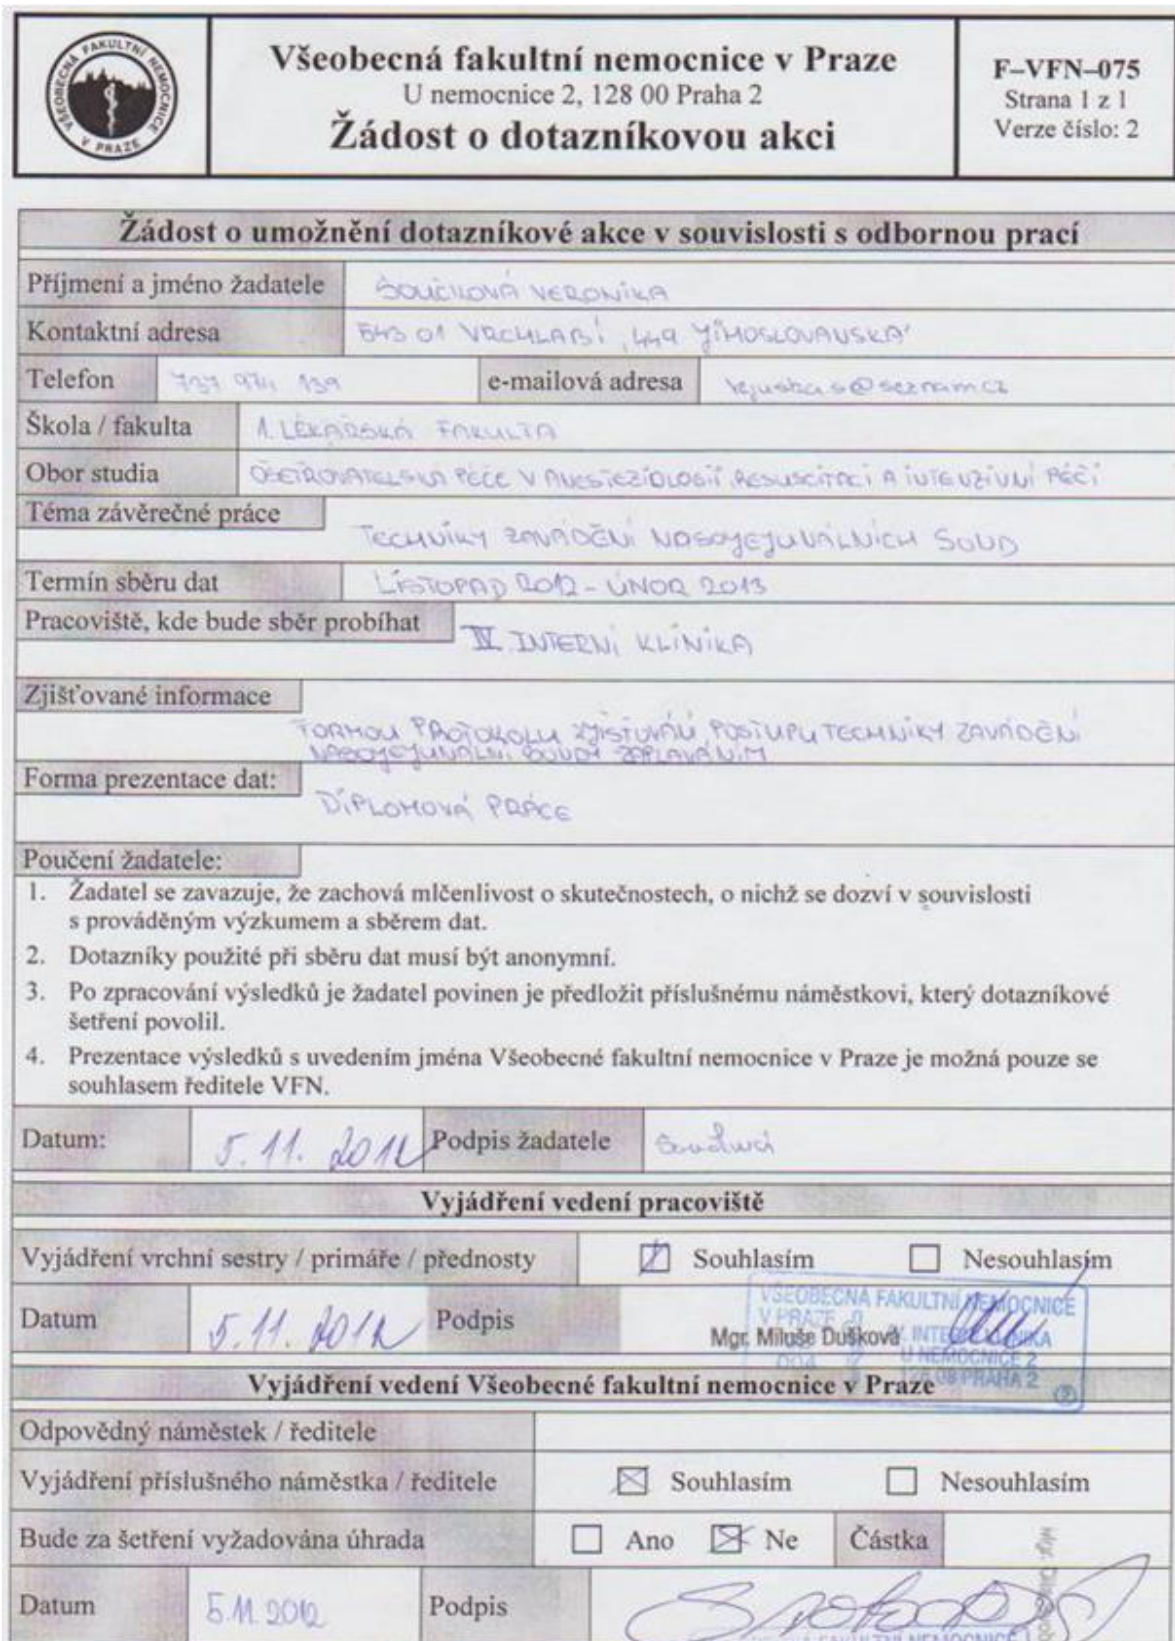 VŠEOBECNÁ FAKULTNÍ NEMOCNICE V PRAZE
Všeobecná fakultní nemocnice v Praze
U nemocnice 2, 128 00 Praha 2
Žádost o dotazníkovou akci
F–VFN–075
Strana 1 z 1
Verze číslo: 2
Žádost o umožnění dotazníkové akce v souvislosti s odbornou prací
Příjmení a jméno žadatele SOUČKOVÁ VERONIKA
Kontaktní adresa 543 01 VRCHLABÍ, 449 JIHOSLOVANSKÁ
Telefon 737 974 139 e-mailová adresa @seznam.cz
Škola / fakulta 1. LÉKAŘSKÁ FAKULTA
Obor studia OŠETŘOVATELSKÁ PÉČE V ANESTEZIOLOGII, RESUSCITACI A INTENZIVNÍ PÉČI
Téma závěrečné práce TECHNIKY ZAVÁDĚNÍ NASOJEJUNÁLNÍCH SOND
Termín sběru dat LISTOPAD 2012 - ÚNOR 2013
Pracoviště, kde bude sběr probíhat IV. INTERNÍ KLINIKA
Zjišťované informace
FORMOU PROTOKOLU ZJIŠŤOVÁNÍ POSTUPU TECHNIKY ZAVÁDĚNÍ
NASOJEJUNÁLNÍ SONDY ZAPLAVÁNÍM
Forma prezentace dat:
DIPLOMOVÁ PRÁCE
Poučení žadatele:
1. Žadatel se zavazuje, že zachová mlčenlivost o skutečnostech, o nichž se dozví v souvislosti
s prováděným výzkumem a sběrem dat.
2. Dotazníky použité při sběru dat musí být anonymní.
3. Po zpracování výsledků je žadatel povinen je předložit příslušnému náměstkovi, který dotazníkové
šetření povolil.
4. Prezentace výsledků s uvedením jména Všeobecné fakultní nemocnice v Praze je možná pouze se
souhlasem ředitele VFN.
Datum: 5. 11. 2012 Podpis žadatele
Vyjádření vedení pracoviště
Vyjádření vrchní sestry / primáře / přednosty Souhlasím Nesouhlasím
Datum 5. 11. 2012 Podpis
VŠEOBECNÁ FAKULTNÍ NEMOCNICE
V PRAZE
Mgr. Miluše Dušková
IV. INTERNÍ KLINIKA
U NEMOCNICE 2
128 08 PRAHA 2
Vyjádření vedení Všeobecné fakultní nemocnice v Praze
Odpovědný náměstek / ředitele
Vyjádření příslušného náměstka / ředitele Souhlasím Nesouhlasím
Bude za šetření vyžadována úhrada Ano Ne Částka
Datum 5.11.2012 Podpis
Mgr.
FAKULTNÍ NEMOCNICE